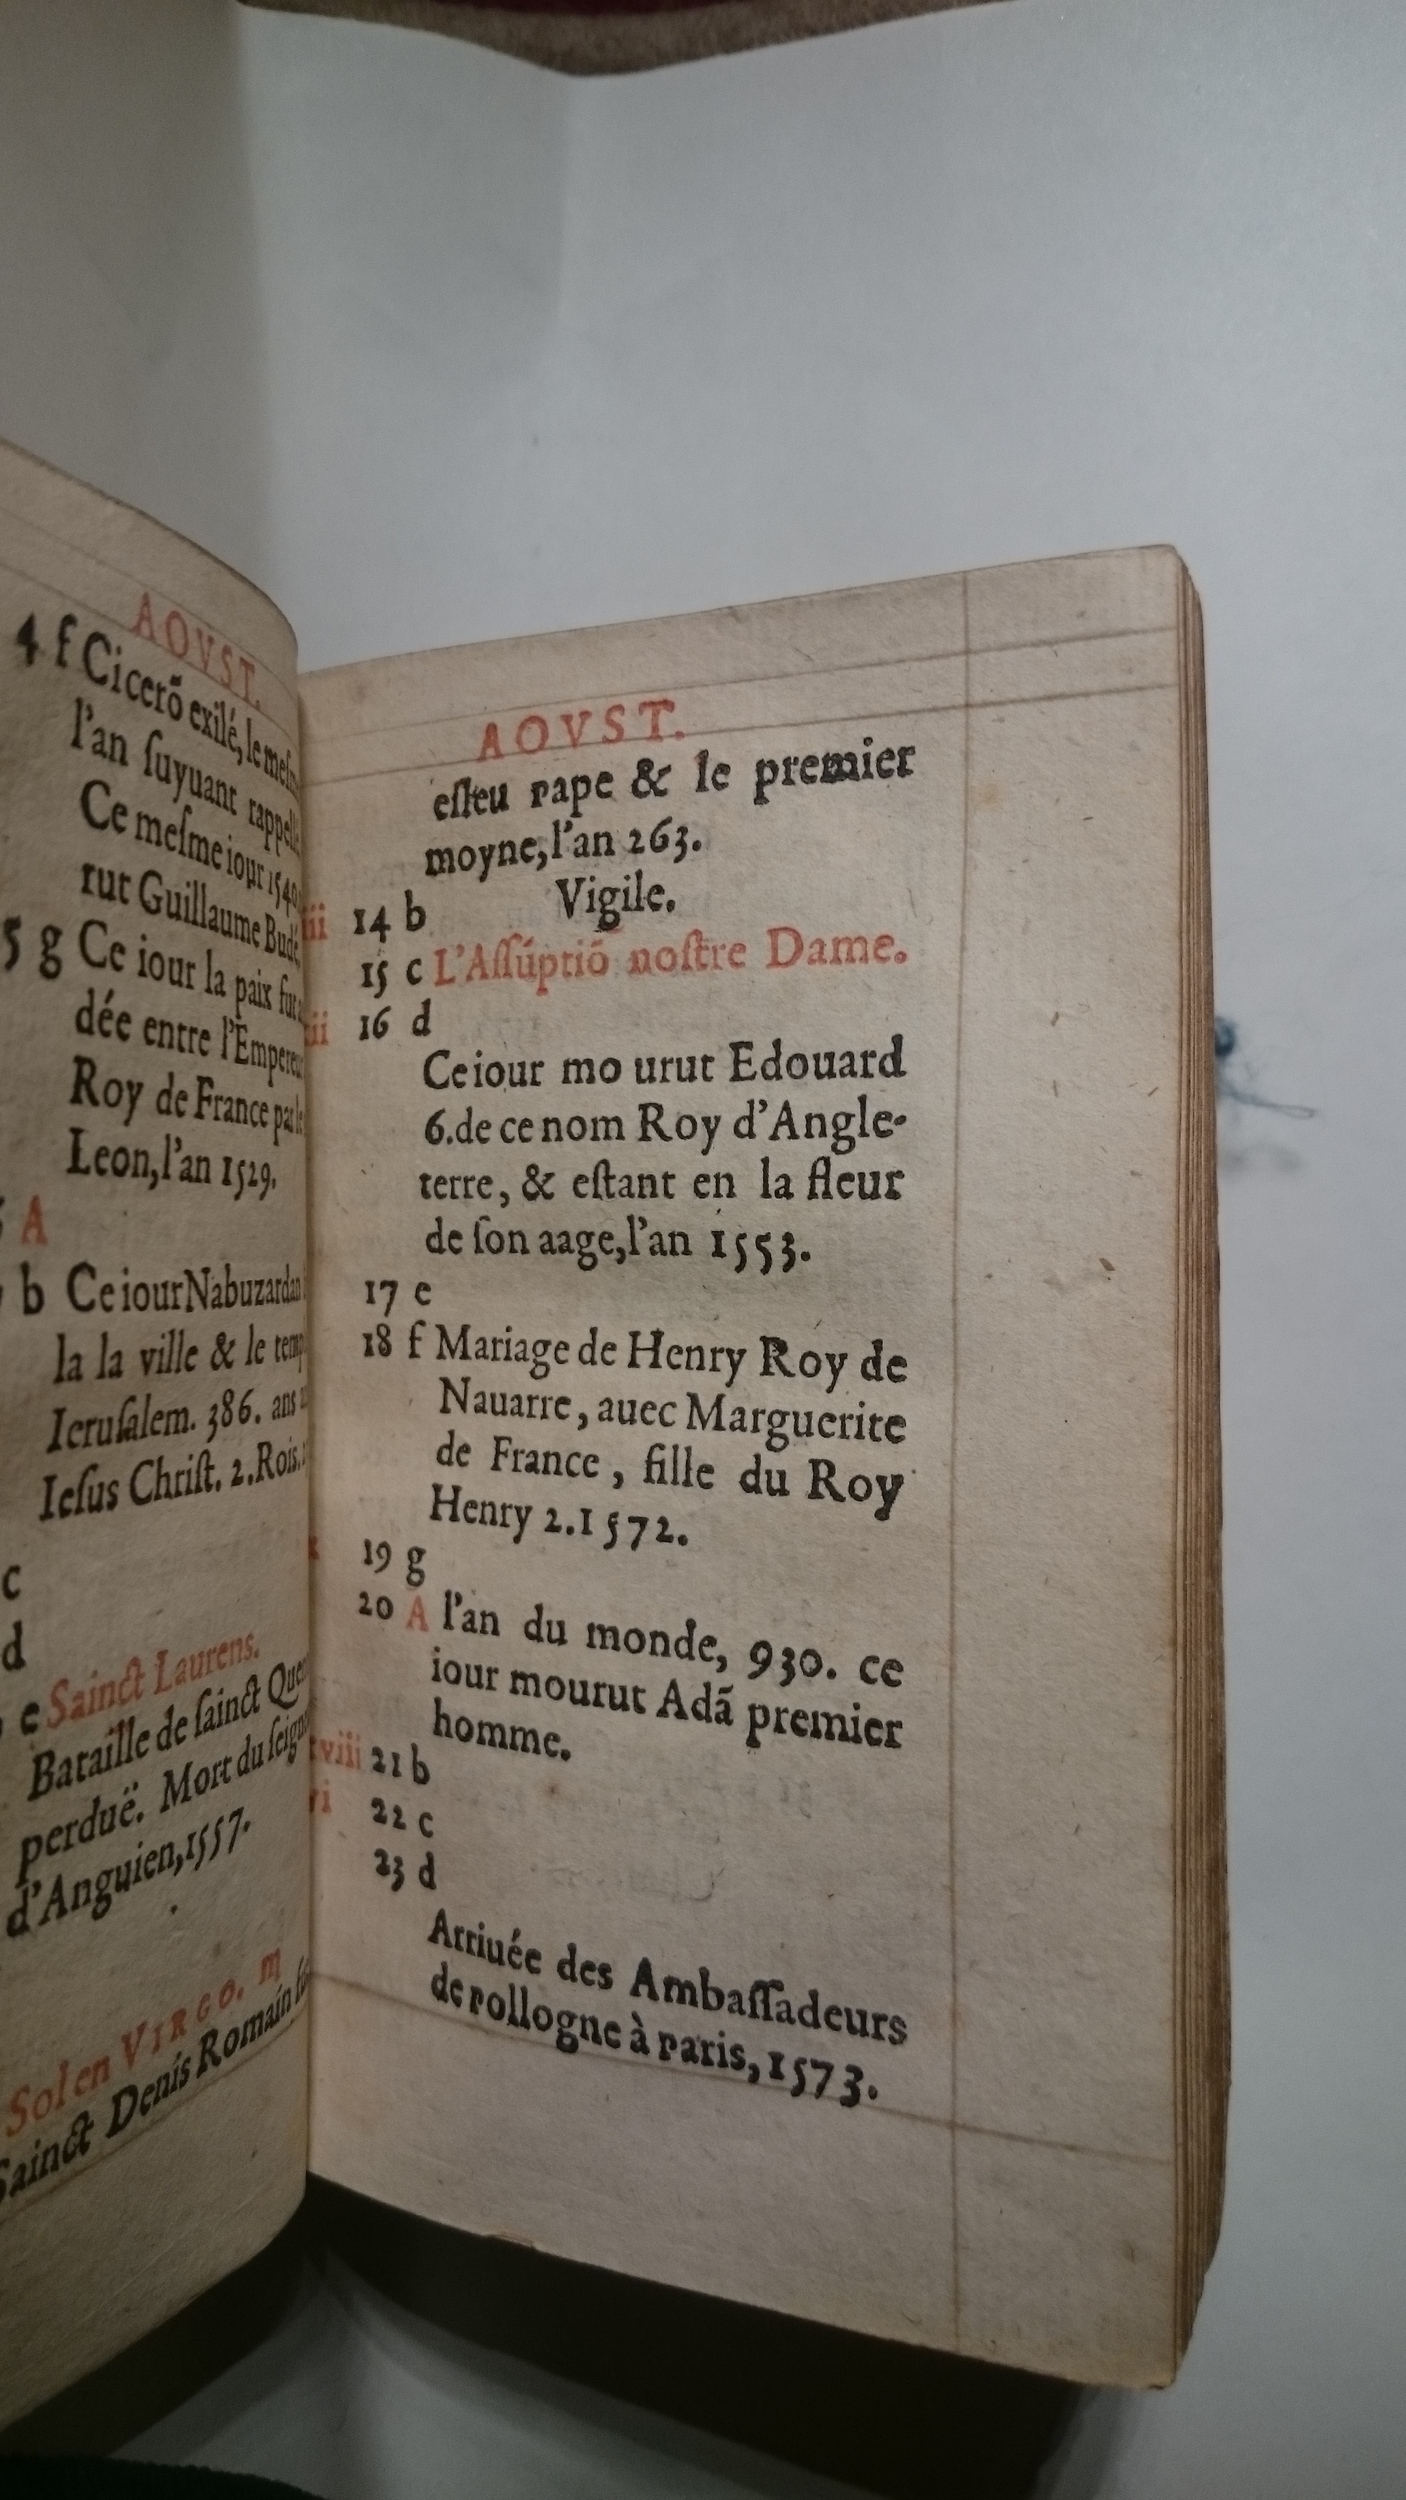 AOVST.
4 f Ciceró exilé, le mesm
l'an ſuyuant rappell
Ce meſme iour 1540
rut Guillaume Budé
5 g Ce iour la paix fut
dée entre l'Empereu
Roy de France par
Leon, l'an 1529.
A
b Ce iour Nabuzardan
la la ville & le temp
Ieruſalem. 386. ans
Ieſus Chriſt. 2. Rois.
c
d
e Sainct Laurens.
Bataille de ſainct Quen
perduë. Mort du ſeign
d'Anguien, 1557.
Sol en VIRGO. ♍
Sainct Denis Romain
AOVST.
eſleu pape & le premier
moyne, l'an 263.
14 b Vigile.
15 c L'Aſſúptiõ noſtre Dame.
16 d
Ce iour mo urut Edouard
6. de ce nom Roy d'Angle-
terre, & eſtant en la fleur
de ſon aage, l'an 1553.
17 e
18 f Mariage de Henry Roy de
Nauarre, auec Marguerite
de France, fille du Roy
Henry 2. 1572.
19 g
20 A l'an du monde, 930. ce
iour mourut Adã premier
homme.
xviii 21 b
vi 22 c
23 d
Arriuée des Ambaſſadeurs
de pollogne à paris, 1573.